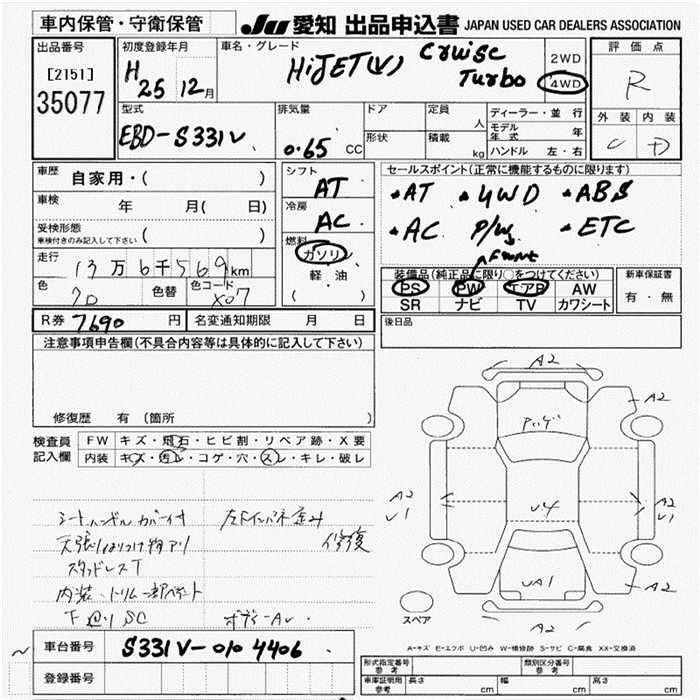 車内保管・守衛保管
JU 愛知 出品申込書 JAPAN USED CAR DEALERS ASSOCIATION
出品番号
[2151]
35077
初度登録年月
H 25 12月
車名・グレード
HiJET(V) Cruise Turbo
2WD
4WD
評価点
R
外装 内装
C D
型式
EBD-S331V
排気量
0.65 CC
ドア
形状
定員 人
積載 kg
ディーラー・並行
モデル年式 年
ハンドル 左・右
車歴
自家用・( )
車検 年 月( 日)
受検形態
車検付きのみ記入して下さい ( )
走行
13万6千569km
色 色替 色コード
X07
R券 7690 円 名変通知期限 月 日
シフト
AT
冷房
AC
燃料
ガソリン
軽・油
( )
セールスポイント(正常に機能するものに限ります)
・AT ・4WD ・ABS
・AC P/W ・ETC
Front
装備品(純正品に限り○をつけてください)
PS PW エアB AW
SR ナビ TV カワシート
新車保証書
有・無
後日品
注意事項申告欄(不具合内容等は具体的に記入して下さい)
修復歴 有(箇所 )
検査員記入欄
FW キズ・飛石・ヒビ割・リペア跡・X要
内装 キズ・汚レ・コゲ・穴・スレ・キレ・破レ
シートハンドルカバー付
天張りはりつけ物アリ
スタッドレスT
内装、トリム一部ペイント
下廻りSC
左Fインパネ歪み
修復
ボデーAU.
A2
A2
A2
U4
A2
U1
A2
U1
UA1
A2
A2
スペア
A-キズ E-エクボ U-凹み W-補修跡 S-サビ C-腐食 XX-交換済
車台番号 S331V-0104406
登録番号
形式指定番号 参考
類別区分番号 参考
車庫証明用 参考 長さ cm 幅 cm 高さ cm